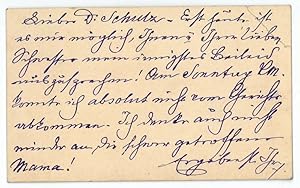 Lieber Dr Schulz – Erst heute ist
es mir möglich, Ihnen u Ihrer lieben
Schwester mein innigstes Beileid
auszusprechen! Am Sonntag
konnte ich absolut nicht vom Gerichte
abkommen. Ich denke auch nicht
minder an die schwer getroffene
Mama!
Ergebenst Ihr